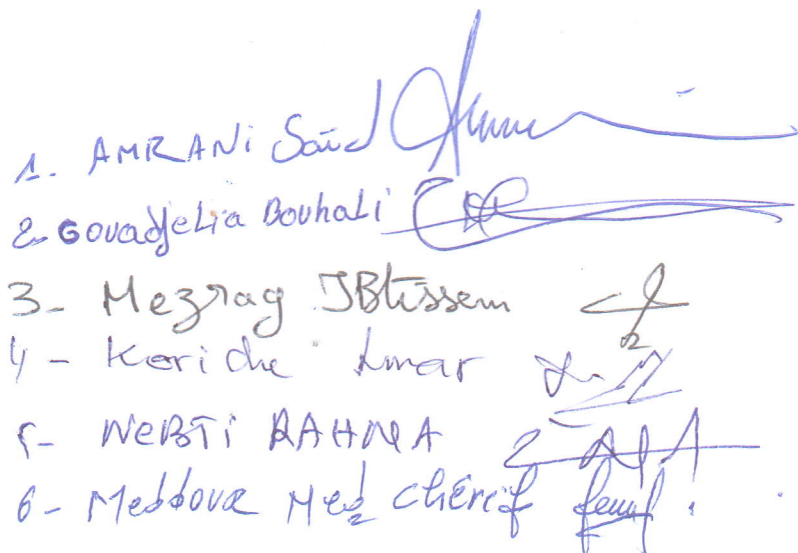 1. AMRANi Saïd
2. GouadjeLia Bouhali
3- Mezrag IBtissem
4- Keriche Amar
5- NEBTi RAHMA
6- Meddour Med chérif